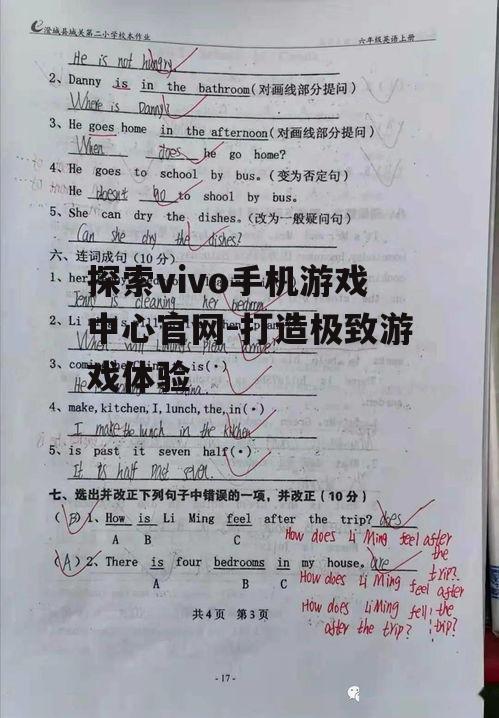 澄城县城关第二小学校本作业 六年级英语上册
He is not hungry
2、Danny is in the bathroom(对画线部分提问)
Where is Danny?
3、He goes home in the afternoon(对画线部分提问)
When does he go home?
4、He goes to school by bus.(变为否定句)
He doesn't go to shool by bus.
5、She can dry the dishes.(改为一般疑问句)
Can she dry the dishes?
六、连词成句(10分)
探索vivo手机游戏
中心官网-打造极致游
戏体验
1、her
Jenny is cleaning her bedroom.
2、Li
3、com is(·)
4、make,kitchen,I,lunch,the,in(·)
I make the lunch in the kitchen
5、is past it seven half(·)
It is half past seven.
七、选出并改正下列句子中错误的一项,并改正(10分)
(B)1、How is Li Ming feel after the trip? does
A B C
How does Li Ming feel after the trip?
(A)2、There is four bedrooms in my house. are
A B C
How does Li Ming feel after the trip?
How does Li Ming fell after the trip?
共4页 第3页
-17-